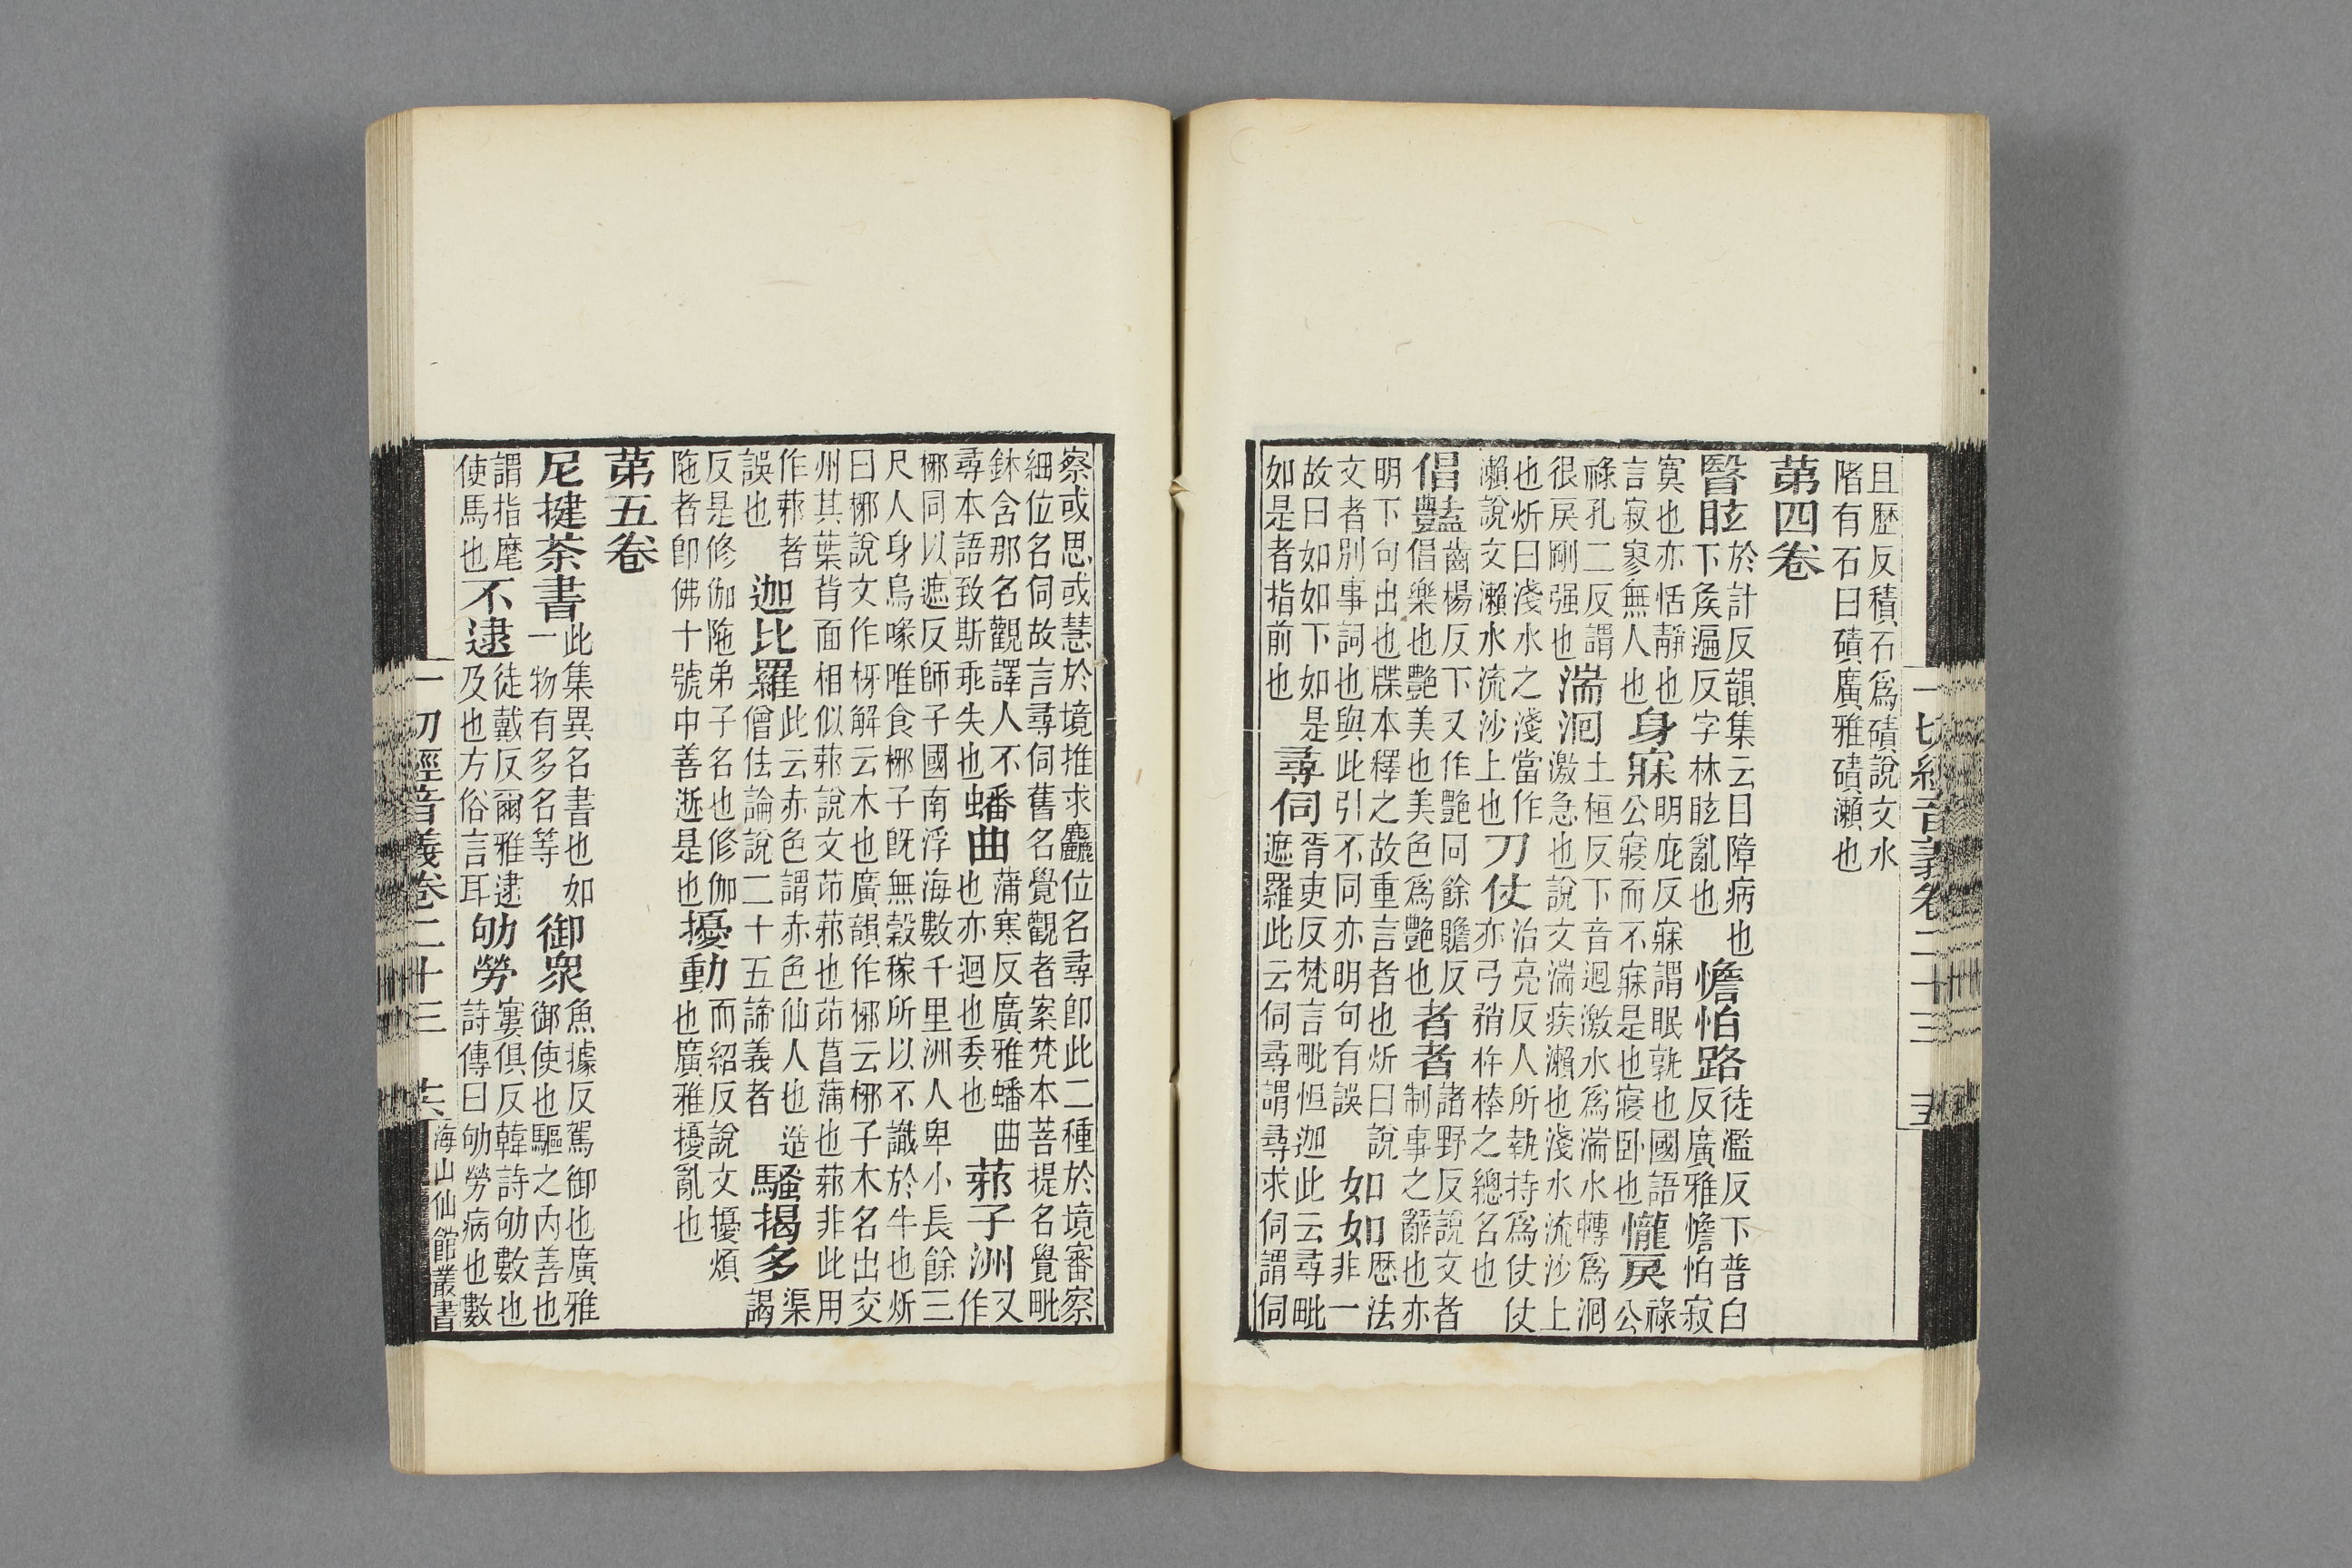 一切經音義卷二十三 十五
且歷反積石爲磧說文水陼有石曰磧廣雅磧瀨也
第四卷
瞖眩於計反韻集云目障病也下矦遍反字林眩亂也憺怕路徒濫反下普白反廣雅憺怕寂
寞也亦恬靜也言寂寥無人也身寐明庇反寐謂眠孰也國語公寢而不寐是也寢卧也儱戾祿公
祿孔二反謂很戾剛强也湍洄土桓反下音迴激水爲湍水轉爲洄激急也說文湍疾瀨也淺水流沙上
也炘曰淺水之淺當作瀨說文瀨水流沙上也刀仗治亮反人所執持爲仗仗亦弓矟杵棒之總名也
倡豔齒楊反下又作艷同餘贍反倡樂也艷美也美色爲艷也者者諸野反說文者制事之辭也亦
明下句出也牒本釋之故重言者也炘曰說文者別事詞也與此引不同亦明句有誤如如歷法非一
故曰如如下如是如是者指前也尋伺胥吏反梵言毗怛迦此云尋毗遮羅此云伺尋謂尋求伺謂伺
察或思或慧於境推求麤位名尋卽此二種於境審察細位名伺故言尋伺舊名覺觀者案梵本菩提名覺毗
鉢舍那名觀譯人不尋本語致斯乖失也蟠曲蒲寒反廣雅蟠曲也亦迴也委也䓉子洲又作
梛同以遮反師子國南浮海數千里洲人卑小長餘三尺人身鳥喙唯食梛子旣無穀稼所以不識於牛也炘
曰梛說文作枒解云木也廣韻作梛云梛子木名出交州其葉背面相似䓉說文茚䓉也茚菖蒲也䓉非此用
作䓉者誤也迦比羅此云赤色謂赤色仙人也造僧佉論說二十五諦義者騷揭多渠謁
反是修伽陁弟子名也修伽陁者卽佛十號中善逝是也擾動而紹反說文擾煩也廣雅擾亂也
第五卷
尼揵荼書此集異名書也如一物有多名等御衆魚據反駕御也廣雅御使也驅之內善也
謂指麾使馬也不逮徒戴反爾雅逮及也方俗言耳劬勞寠俱反韓詩劬數也詩傳曰劬勞病也數
一切經音義卷二十三 十六 海山仙館叢書